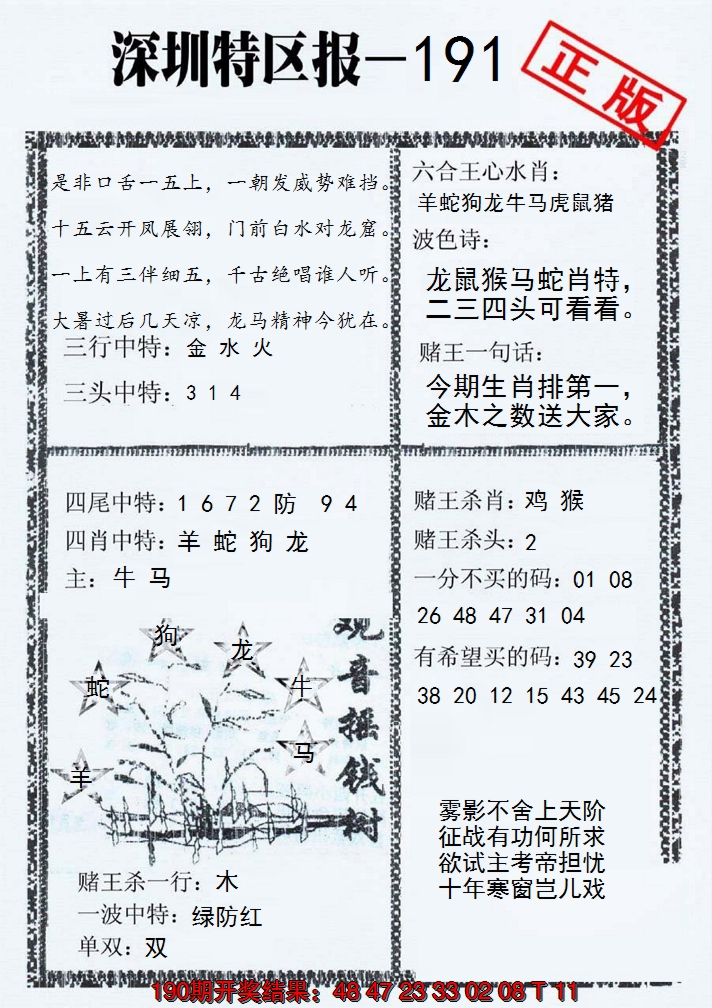 深圳特区报—191
正版
是非口舌一五上，一朝发威势难挡。
十五云开凤展翎，门前白水对龙窟。
一上有三伴细五，千古绝唱谁人听。
大暑过后几天凉，龙马精神今犹在。
三行中特：金 水 火
三头中特：3 1 4
六合王心水肖：
羊蛇狗龙牛马虎鼠猪
波色诗：
龙鼠猴马蛇肖特，
二三四头可看看。
赌王一句话：
今期生肖排第一，
金木之数送大家。
四尾中特：1 6 7 2 防 9 4
四肖中特：羊 蛇 狗 龙
主：牛 马
狗
龙
蛇
牛
马
羊
观音摇钱树
赌王杀一行：木
一波中特：绿防红
单双：双
赌王杀肖：鸡 猴
赌王杀头：2
一分不买的码：01 08
26 48 47 31 04
有希望买的码：39 23
38 20 12 15 43 45 24
雾影不舍上天阶
征战有功何所求
欲试主考帝担忧
十年寒窗岂儿戏
190期开奖结果：48 47 23 33 02 08 T 11